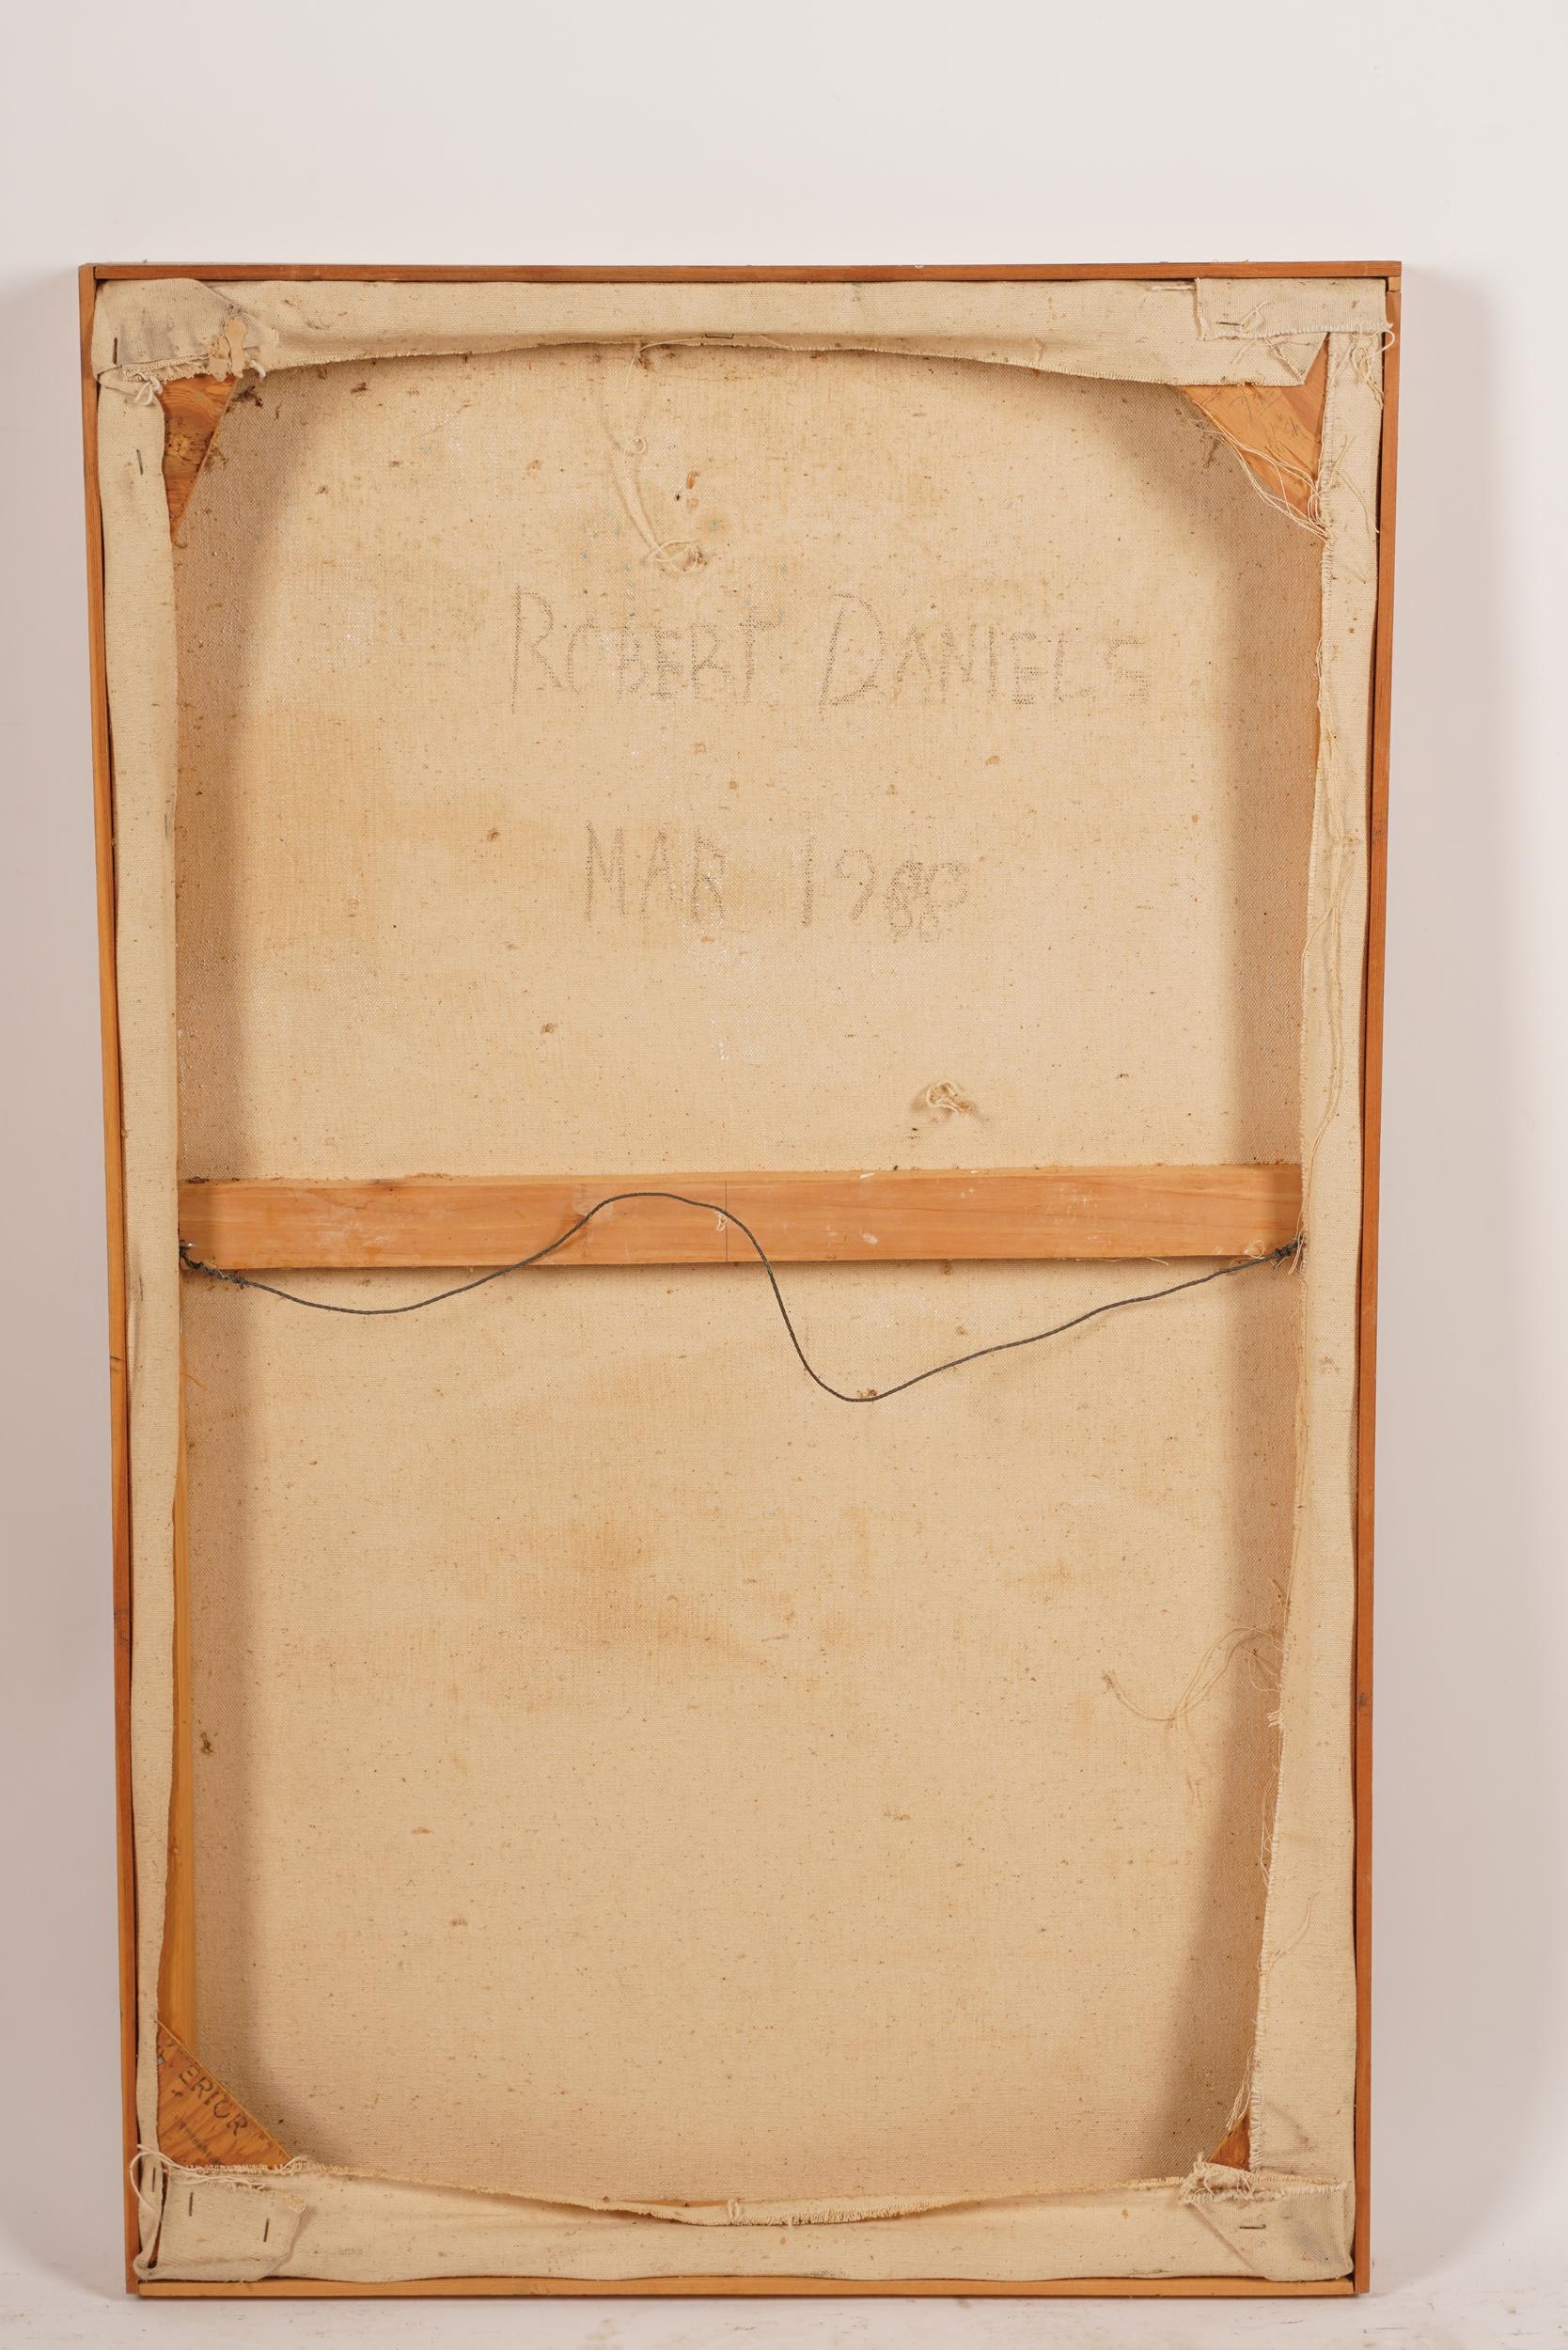 ROBERT DANIELS
MAR 1980
ERIOR